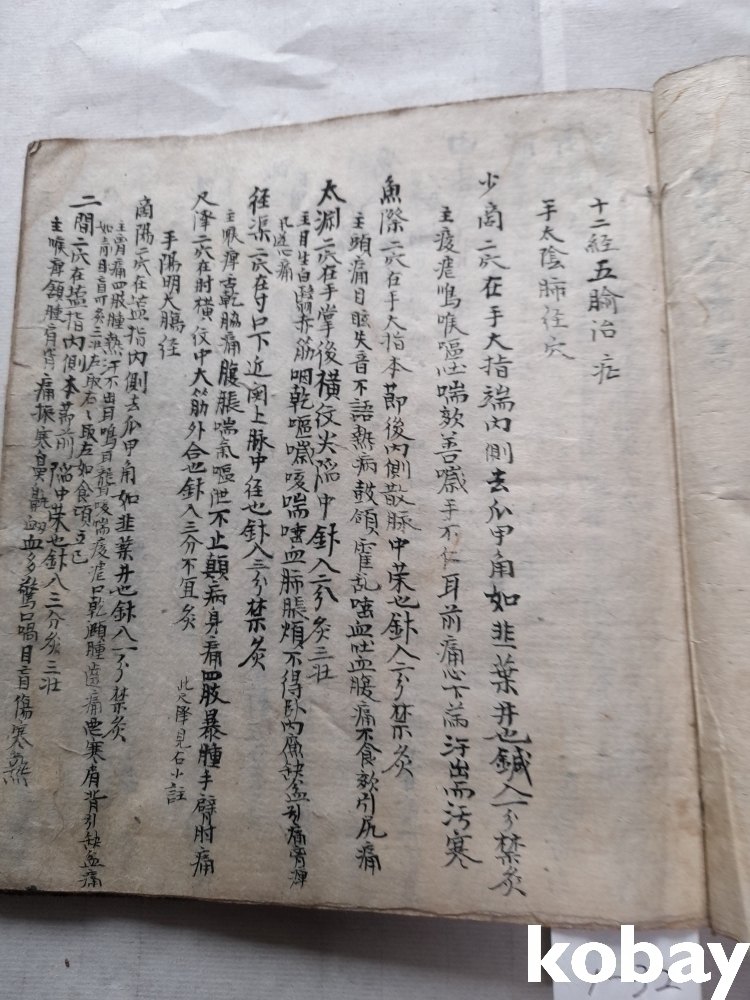 十二経五腧治症
手太陰肺経穴
少商二穴在手大指端內側去爪甲角如韭葉井也鍼入一分禁灸
主痎瘧鳴喉嘔吐喘欬善噦手不仁耳前痛心下滿汗出而汚寒
魚際二穴在手大指本節後內側散脉中荣也針入二分禁灸
主頭痛目眩失音不語熱病鼓頷霍乱嗌血吐血腹痛不食欬引尻痛
太渊二穴在手掌後橫紋尖陷中針入二分灸三壮
主目生白翳赤筋咽乾嘔噦咳喘嗌血肺脹煩不得卧內廉缺盆引痛
径渠二穴在寸口下近関上脉中径也針入三分禁灸
主喉痺乾脇痛腹脹喘氣嘔泄不止顚病身痛四肢暴腫手臂肘痛
尺泽二穴在肘橫紋中大筋外合也針入三分不宜灸
此尺澤見右小註
手陽明大腸径
商陽二穴在盐指內側去爪甲角如韭葉井也針入一分禁灸
主胃痛四肢腫熱汗不出耳鳴耳聾咳喘痎瘧口乾頤腫齒痛恶寒肩背引缺盆痛
如青目盲可灸三壮左取右右取左如食頃立已
二間二穴在盐指內側本節前陷中荣也針入三分灸三壮
主喉痺頷腫肩背痛振寒鼻鼽衄血多驚口喎目盲傷寒熱